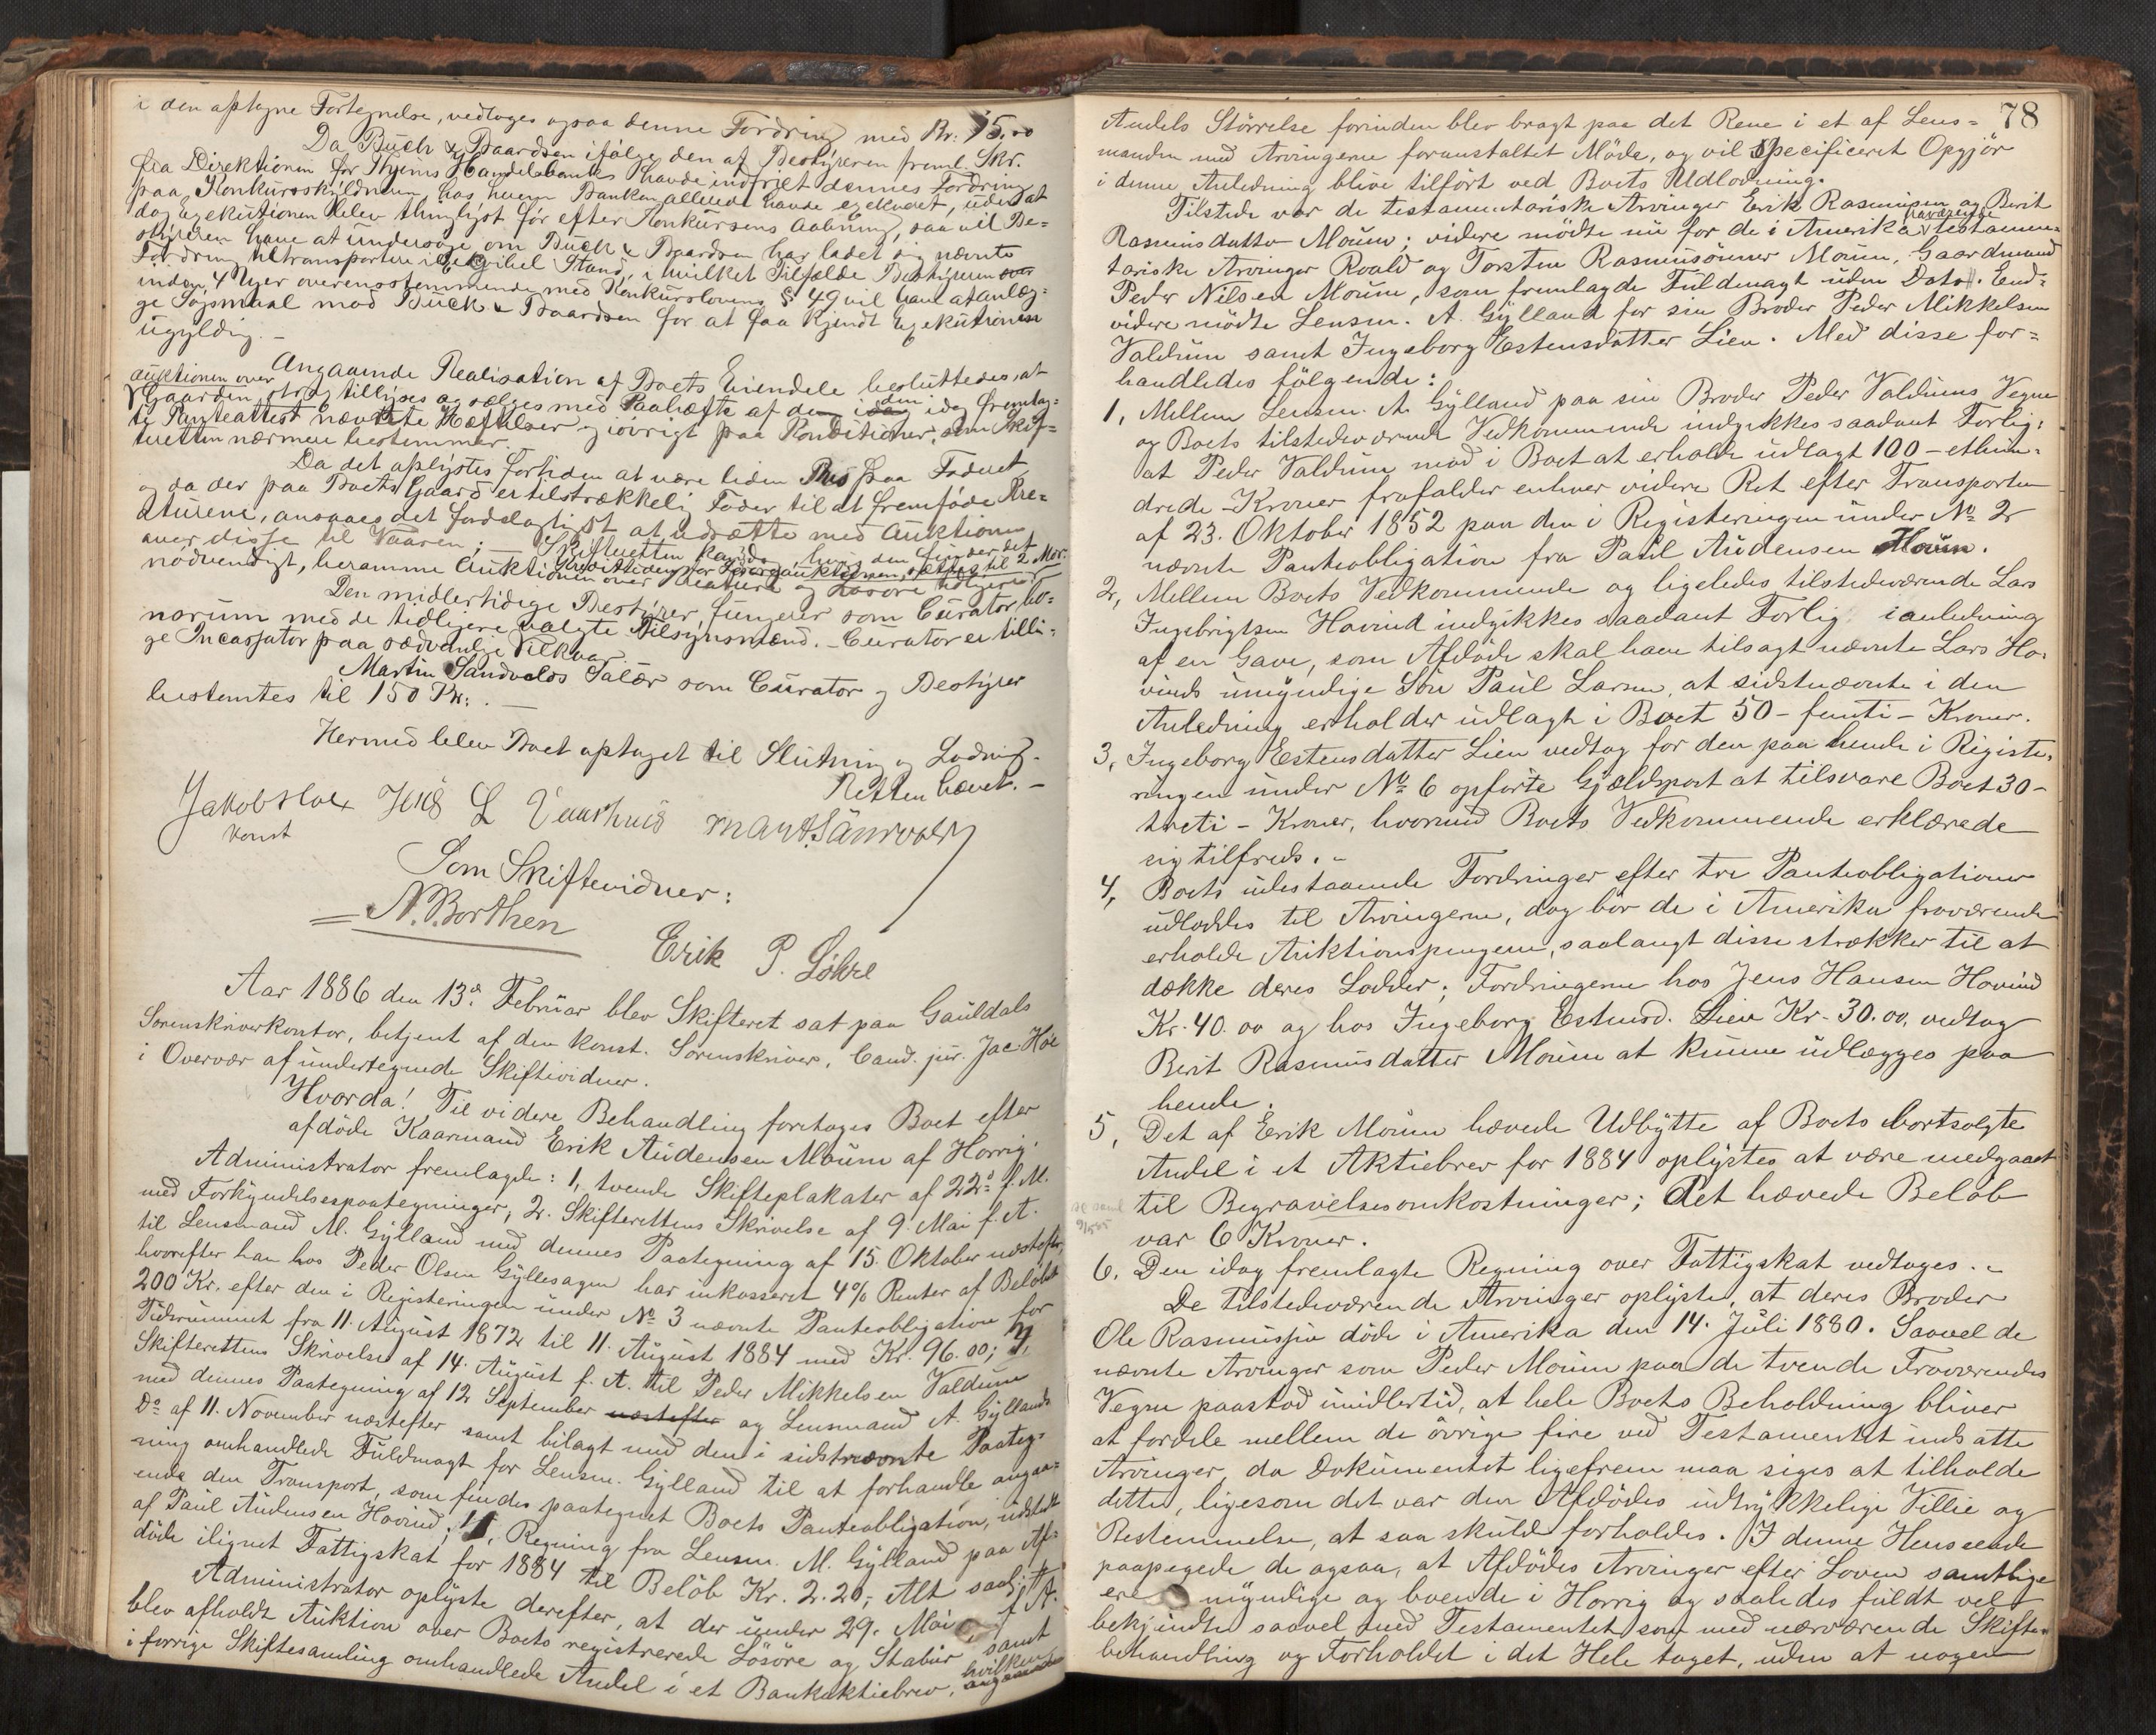 i den optagne Fortegnelse, vedtoges ogsaa denne Fordring med Kr. 75.00
Da Buch & Baardsen ifølge den af Bestyreren freml. Skr.
fra Direktionen for Thjems Handelsbank havde indfriet dennes Fordring
paa Konkursskyldneren, hos hvem Banken allerede havde exekveret, uden at
dog Exekutionen blev thinglyst før efter Konkursens Aabning, saa vil Be-
styreren have at undersøge, om Buch & Baardsen har ladet sig nævnte
Fordring tiltransportere i Stand, i hvilket Tilfælde Bestyreren
inden 4 Uger overensstemmende med Konkurslovens § 49 vil have at anlæg-
ge Søgsmaal mod Buch & Baardsen for at faa kjendt Exekutionen
ugyldig. -
Angaaende Realisation af Boets Eiendele besluttedes, at
Auktionen over
Gaarden strax tillyses og sælges med Paahæfte af de i den idag fremlag-
te Panteattest nævnte Hæftelser og iøvrigt paa Konditioner, som Skif-
teretten nærmere bestemmer.
Da det oplystes for tiden at være liden Pris paa Faderet
og da der paa Boets Gaard er tilstrækkelig Foder til at fremføde Kre-
aturene, ansaaes det fordelagtigst at udsætte med Auktionen
over disse til Vaaren; - Skifteretten kan dog, hvis den finder det
nødvendigt, beramme Auktionen over Kreature og Løsøre tidligere
Kredittiden for Løsøreauktionen sættes til 2 Mdr.
Den midlertidige Bestyrer fungerer som Curator bo-
norum med de tidligere valgte Tilsynsmænd. - Curator er tilli-
ge Incassator paa sædvanlige Vilkaar.
Martin Sandvolds Salær som Curator og Bestyrer
bestemtes til 150 Kr. . -
Hermed blev Boet optaget til Slutning og Lodning.
Retten hævet. -
Jakob Høe Jens L Vaarhuis Mart. Sanvold
konst
Som Skiftevidner:
N. Borthen
Erik P. Løhre
Aar 1886 den 13de Februar blev Skifteret sat paa Gauldals
Sorenskriverkontor, betjent af den konst. Sorenskriver, Cand. jur. Jac. Höe
i Overvær af undertegnede Skiftevidner.
Hvorda! Til videre Behandling foretoges Boet efter
afdöde Kaarmand Erik Audensen Moum af Horrig.
Administrator fremlagde: 1, tvende Skifteplakater af 22de f. M.
med Forkyndelsespaategninger, 2. Skifterettens Skrivelse af 9. Mai f. A.
til Lensmand M. Gylland med dennes Paategning af 15. Oktober næstefter,
hvorefter han hos Peder Olsen Gyllesagen har inkasseret 4% Renter af Belöbet
200 Kr. efter den i Registeringen under No 3 nævnte Panteobligation for
Tidsrummet fra 11. August 1872 til 11. August 1884 med Kr. 96.00; 3,
Skifterettens Skrivelse af 14. August f. A. til Peder Mikkelsen Valdum
med dennes Paategning af 12 September næstefter og Lensmand A. Gyllands
Do af 11. November næstefter samt bilagt med den i sidstnævnte Paateg-
ning omhandlede Fuldmagt for Lensm. Gylland til at forhandle angaa-
ende den Transport, som findes paategnet Boets Panteobligation, udstedt
af Paul Audensen Hovind; 4, Regning fra Lensm. M. Gylland paa Af-
döde ilignet Fattigskat for 1884 til Belöb Kr. 2.20; Alt saal.
Administrator oplyste derefter, at der under 29. Mai f. A.
blev afholdt Auktion over Boets registrerede Lösöre og Stabur samt
i forrige Skiftesamling omhandlede Andel i et Bankaktiebrev, hvilken
angaaende
78
Andels Störrelse forinden blev bragt paa det Rene i et af Lens-
manden med Arvingerne foranstaltet Möde, og vil specificeret Opgjör
i denne Anledning blive tilfört ved Boets Udlodning.
Tilstede var de testamentariske Arvinger Erik Rasmussen og Berit
Rasmusdatter Moum; videre mödte nu for de i Amerika fraværende testamen-
tariske Arvinger Roald og Torsten Rasmussönner Moum, Gaardmand
Peder Nilsen Moum, som fremlagde Fuldmagt uden Dato. End-
videre mödte Lensm. A. Gylland for sin Broder Peder Mikkelsen
Valdum samt Ingeborg Estensdatter Lien. Med disse for-
handledes fölgende:
1, Mellem Lensm. A. Gylland paa sin Broder Peder Valdums Vegne
og Boets tilstedeværende Vedkommende indgikkes saadant Forlig:
at Peder Valdum mod i Boet at erholde udlagt 100 - ethun-
drede - Kroner frafalder enhver videre Ret efter Transporten
af 23. Oktober 1852 paa den i Registeringen under No 2
nævnte Panteobligation fra Paul Audensen Houm.
2, Mellem Boets Vedkommende og ligeledes tilstedeværende Lars
Ingebrigtsen Hovind indgikkes saadant Forlig i anledning
af en Gave, som Afdöde skal have tilsagt nævnte Lars Ho-
vinds umyndige Sön Paul Larsen, at sidstnævnte i den
Anledning erholder udlagt i Boet 50 - femti - Kroner.
3, Ingeborg Estensdatter Lien vedtog for den paa hende i Registe-
ringen under No 6 opförte Gjældspost at tilsvare Boet 30 -
treti - Kroner, hvormed Boets Vedkommende erklærede
sig tilfreds. -
4, Boets udestaaende Fordringer efter tre Panteobligationer
udloddes til Arvingerne, dog bör de i Amerika fraværende
erholde Auktionspengene, saalangt disse strækker til at
dække deres Lodder; Fordringerne hos Jens Hansen Hovind
Kr. 40.00 og hos Ingeborg Estensd. Lien Kr. 30.00, vedtog
Berit Rasmusdatter Moum at kunne udlægges paa
hende.
5, Det af Erik Moum hævede Udbytte af Boets bortsolgte
Andel i et Aktiebrev for 1884 oplystes at være medgaaet
til Begravelsesomkostninger; Det hævede Belöb
var 6 Kroner.
6. Den idag fremlagte Regning over Fattigskat vedtoges. -
De tilstedeværende Arvinger oplyste, at deres Broder
Ole Rasmussen döde i Amerika den 14. Juli 1880. Saavel de
nævnte Arvinger som Peder Moum paa de tvende Fraværendes
Vegne paastod imidlertid, at hele Boets Beholdning bliver
at fordele mellem de övrige fire ved Testamentet indsatte
Arvinger, da Dokumentet ligefrem maa siges at tilholde
dette, ligesom det var den Afdödes udtrykkelige Villie og
Bestemmelse, at saa skulde forholdes. I denne Henseende
paapegede de ogsaa, at Afdödes Arvinger efter Loven samtlige
ere myndige og boende i Horrig og saaledes fuldt vel
bekjendte saavel med Testamentet som med nærværende Skifte-
behandling og Forholdet i det Hele taget, uden at nogen